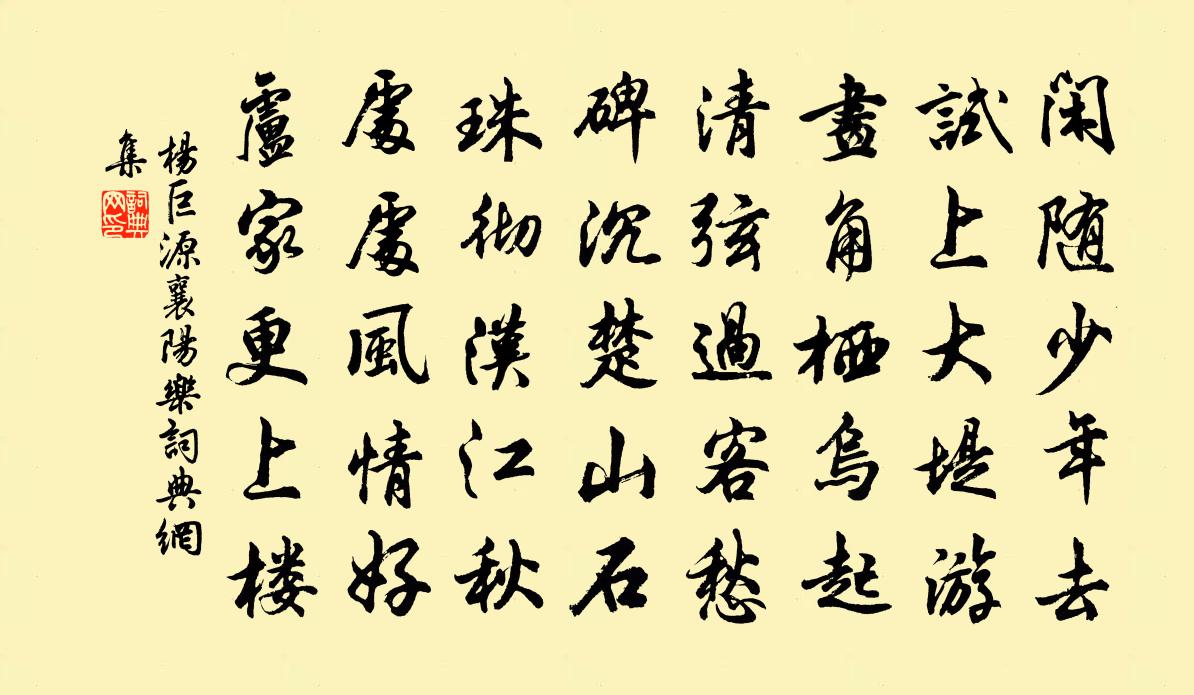 閑随少年去
試上大堤游
畫角栖烏起
清弦過客愁
碑沉楚山石
珠彻漢江秋
處處風情好
盧家更上楼
楊巨源襄陽樂詞典網
集
詞典
网印